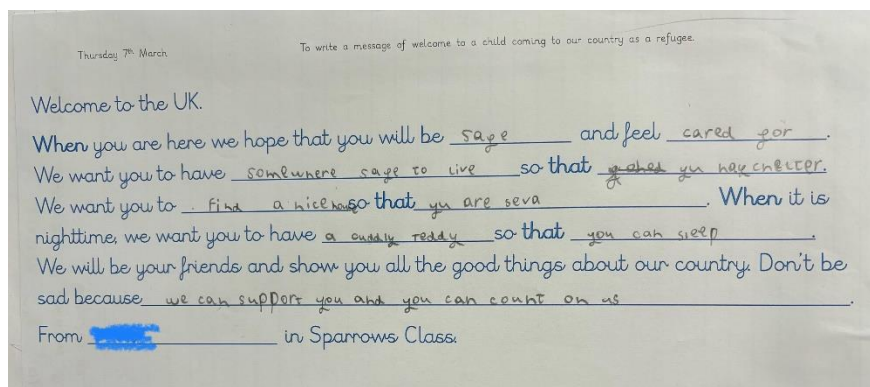 Thursday 7th March
To write a message of welcome to a child coming to our country as a refugee.
Welcome to the UK.
When you are here we hope that you will be safe and feel cared for.
We want you to have somewhere safe to live so that yu hav chelter.
We want you to find a nice house so that yu are seva. When it is
nighttime, we want you to have a cuddly teddy so that you can sleep.
We will be your friends and show you all the good things about our country. Don't be
sad because we can support you and you can count on us.
From in Sparrows Class.